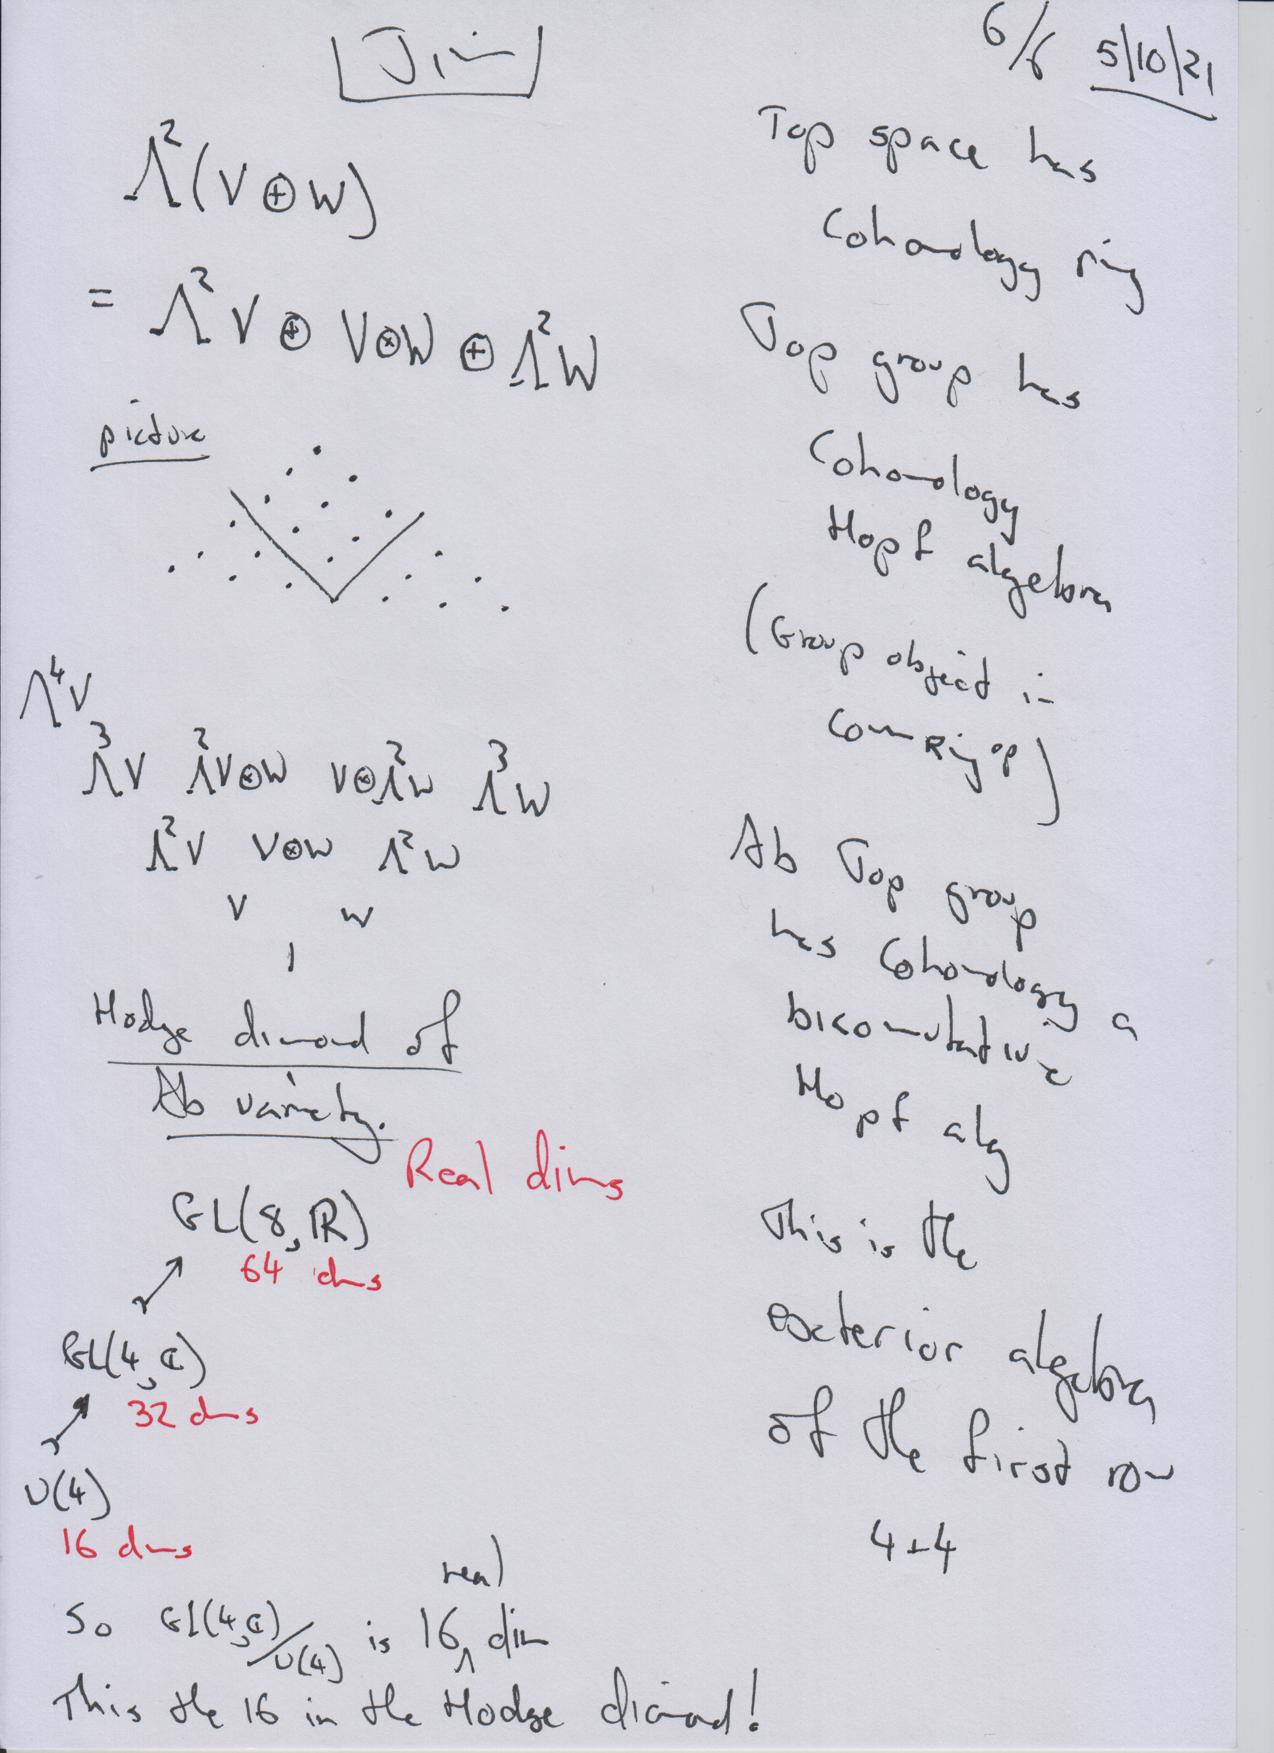 Jim
6/6 5/10/21
Λ²(V⊕W)
= Λ²V ⊕ V⊗W ⊕ Λ²W
picture
Λ⁴V
Λ³V Λ²V⊗W V⊗Λ²W Λ³W
Λ²V V⊗W Λ²W
V W
1
Hodge diamond of
Ab variety.
Real dims
GL(8,ℝ)
64 dms
GL(4,ℂ)
32 dms
U(4)
16 dms
So GL(4,ℂ)/U(4) is 16 real dim
This the 16 in the Hodge diamond!
Top space has
Cohomology ring
Top group has
Cohomology
Hopf algebra
(Group object in
Comm Ring ᵒᵖ)
Ab Top group
has Cohomology a
bicommutative
Hopf alg
This is the
exterior algebra
of the first row
4+4